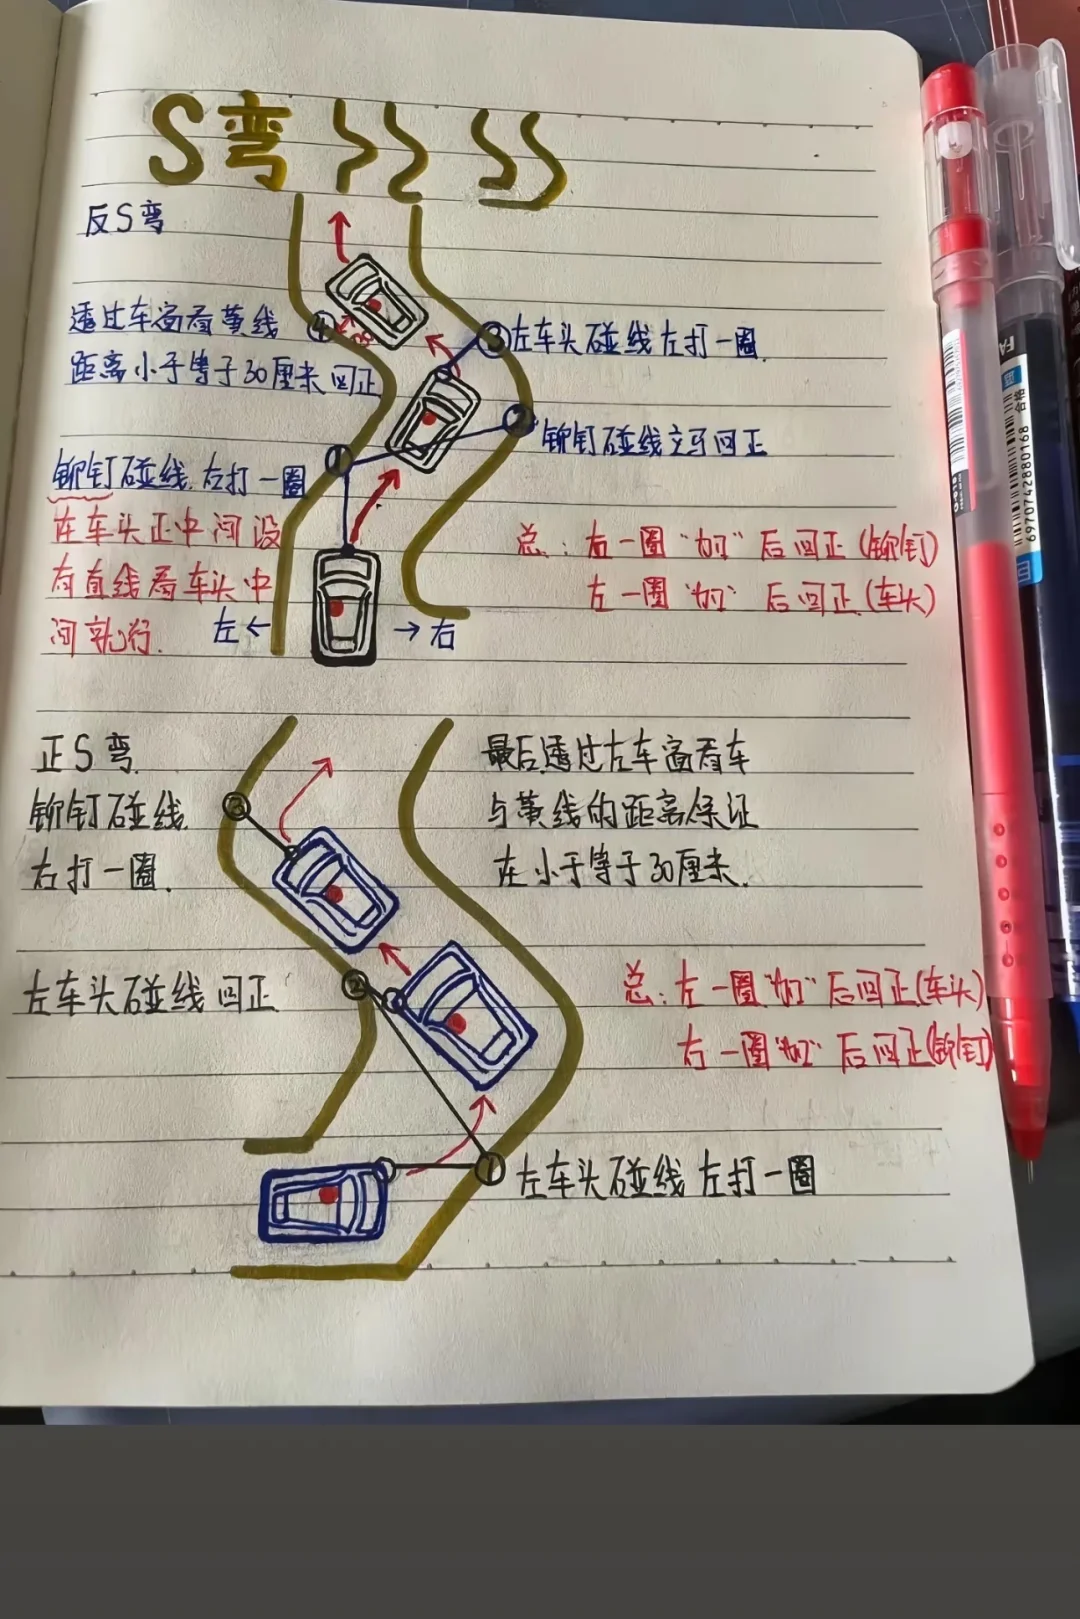 S弯
反S弯
透过车窗看黄线
距离小于等于30厘米回正
④
30
③左车头碰线左打一圈.
②铆钉碰线立马回正
①
铆钉碰线.右打一圈
在车头正中间没
有直线看车头中
间就行.
左←
→右
总: 右一圈"加"后回正(铆钉)
左一圈"加"后回正(车头)
正S弯.
铆钉碰线.
右打一圈.
③
最后透过左车窗看车
与黄线的距离保证
在小于等于30厘米.
左车头碰线回正
②
总: 左一圈"加"后回正(车头)
右一圈"加"后回正(铆钉)
①左车头碰线 左打一圈
6970742880168 合格
蓝